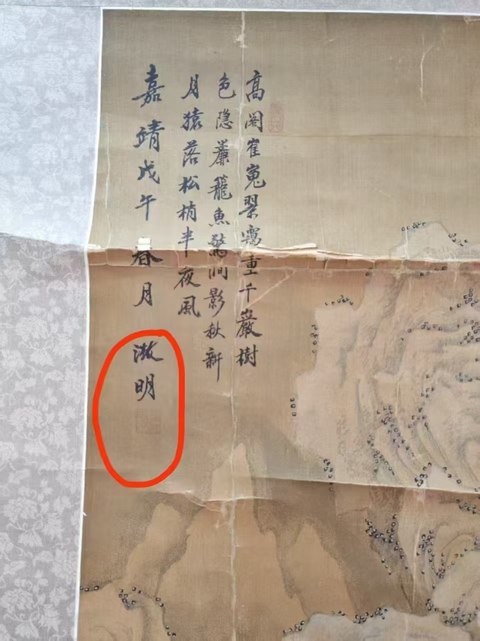 高閣崔嵬翠靄重千巖樹
色隱簾籠魚驚澗影秋新
月猿落松梢半夜風
嘉靖戊午春月徵明